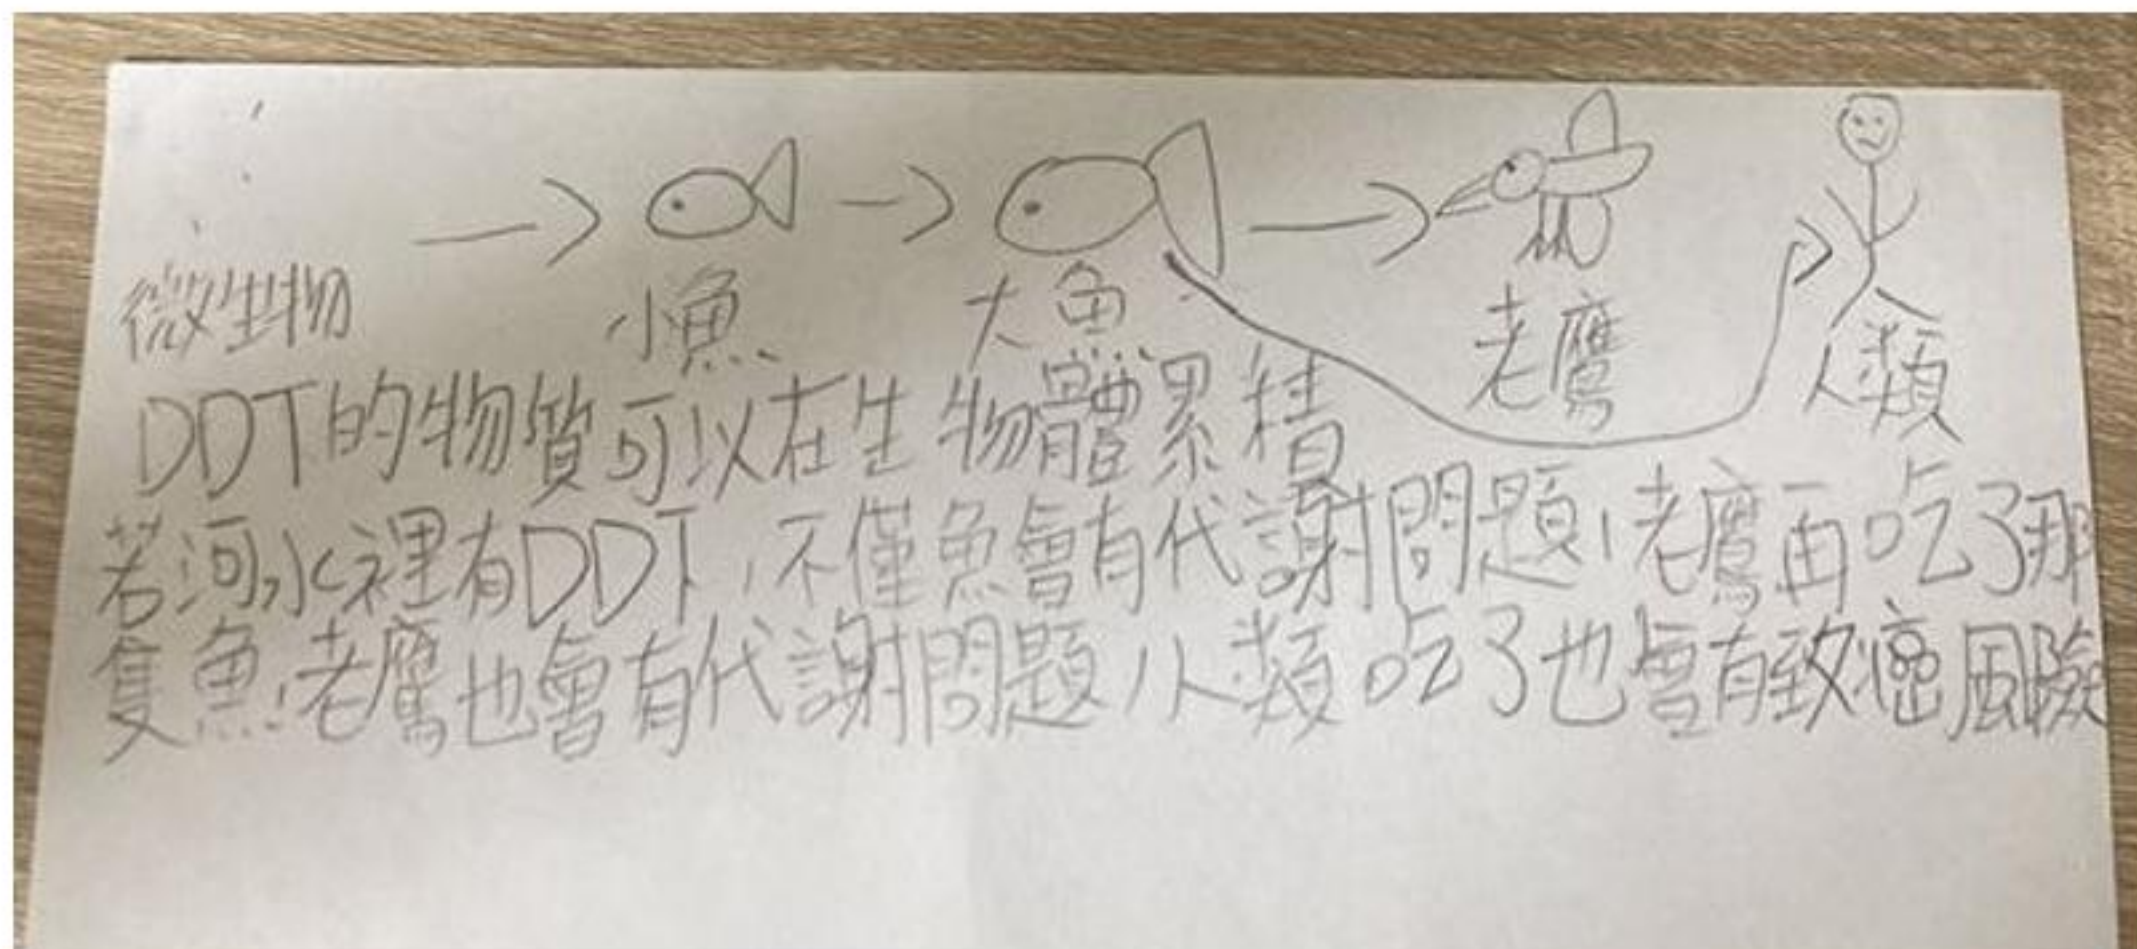 微生物 小魚 大魚 老鷹 人類
DDT的物質可以在生物體累積
若河水裡有DDT,不僅魚會有代謝問題,老鷹再吃了那
隻魚,老鷹也會有代謝問題,人類吃了也會有致癌風險